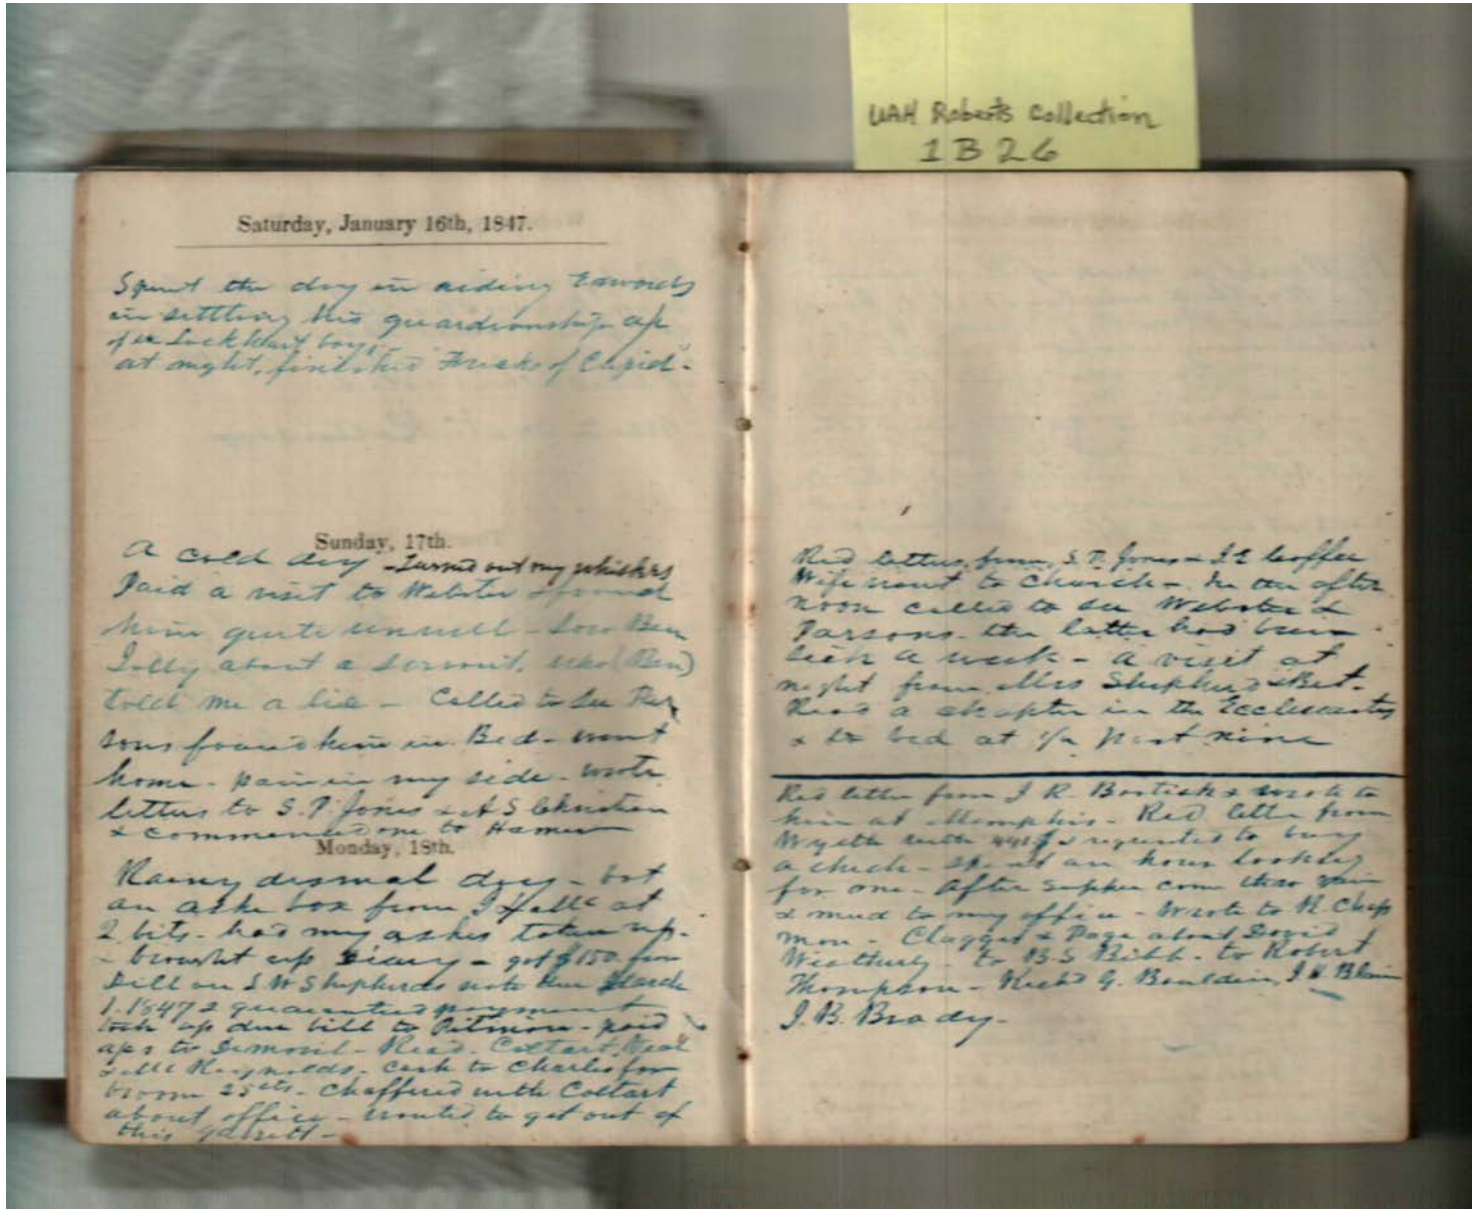 UAH Roberts Collection
1B26
Saturday, January 16th, 1847.
Spent the day in aiding Edwards
in settling his guardianship
of the Lockhart boys
at night, finished Freaks of Cupid.
Sunday, 17th.
A cold day - Turned out my whiskers
Paid a visit to Webster & found
him quite unwell - Saw Ben
Jolly about a servant, who (Ben)
told me a lie - Called to see Par
sons found him in Bed - went
home - pain in my side - wrote
letters to S. P. Jones & A S Christian
& commenced one to Hamer
Monday, 18th.
Rainy dismal day - bot
an ashe box from J at
2 bits - had my ashes taken up -
- brought up Diary - got $150 from
Dill on S W Shepherds note due March
1. 1847 & guarantied payment
took up due bill to Pitman - paid
to - Read. Coltart, Neal
& Mc Reynolds. Cash to Charles for
broom 25 cts - Chaffered with Coltart
about office - wanted to get out of
this Garrett -
Red letters from S. P. Jones & J E Coffee
Wife went to Church - In the after
noon called to see Webster &
Parsons - the latter had been
sick a week - a visit at
night from Mrs Shepherd & Bet.
Read a chapter in the Ecclesiastes
& to bed at 1/2 past nine
Red letter from J R. & wrote to
him at Memphis - Red letter from
Wyeth with & requested to buy
a check - spent an hour looking
for one - After supper come thro rain
& mud to my office - Wrote to R. Chap
man - Clagget & Page about David
Weatherly - to B. S Bibb - to Robert
Thompson - Richd G. Bouldin,
J. B. Brady -